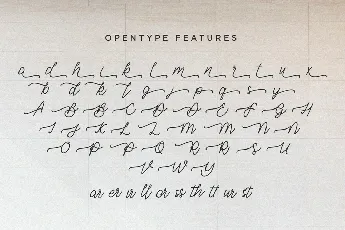 OPENTYPE FEATURES
a d h i k l m n r t u x
b d k t g j p q s y
A B B C D D E F G H
I J K L L M M N N
O P P Q R R S U
V W Y
ar er ir ll or ss th tt ur st